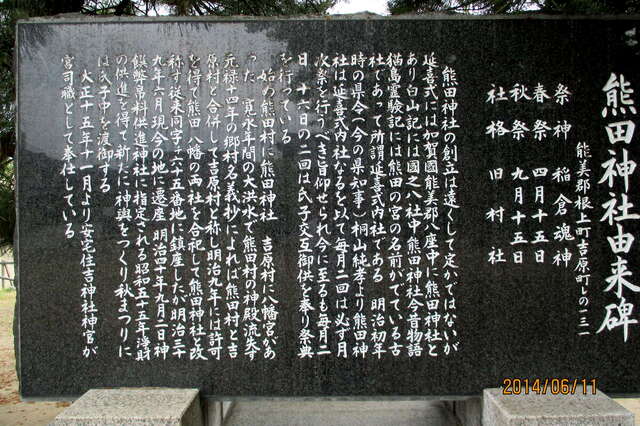 熊田神社由来碑
能美郡根上町吉原町レの一三一
祭神 稲倉魂神
春祭 四月十五日
秋祭 九月十五日
社格 旧村社
熊田神社の創立は遠くして定かではないが
延喜式には加賀國能美郡八座中に熊田神社と
あり白山記には國之八社中熊田神社今昔物語
猫島霊験記には熊田の宮の名前がでている古
社であって所謂延喜式内社である 明治初年
時の県令(今の県知事)桐山純孝より熊田神
社は延喜式内社なるを以て毎月二回は必ず月
次祭を行うべき旨仰せられ今に至るも毎月二
日 十六日の二回は氏子交互御供を奉り祭典
を行っている
始め熊田村に熊田神社 吉原村に八幡宮があ
った 寛永年間の大洪水で熊田村の神殿流失す
元禄十四年の郷村名義抄によれば熊田村と吉
原村と合併して吉原村と称し明治九年には許可
を得て熊田八幡の両社を合祀して熊田神社と改
称す従来同字ム六十五番地に鎮座したが明治三十
九年六月現今の地に遷座 明治四十年九月二日神
饌幣帛料供進神社に指定される昭和五十五年浄財
の供進を得て新たに神輿をつくり秋まつりに
は氏子中を渡御する
大正十五年十一月より安宅住吉神社神官が
宮司職として奉仕している
2014/06/11